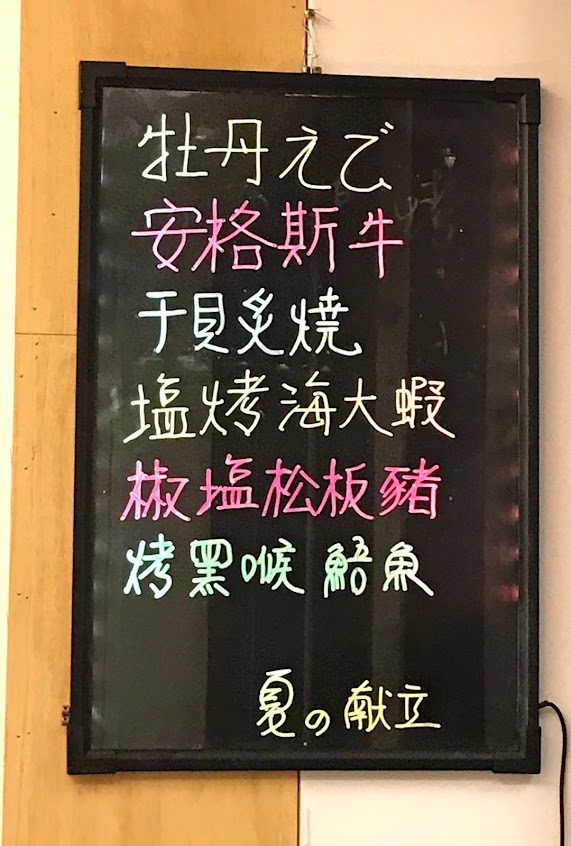 牡丹えび
安格斯牛
干貝炙燒
塩烤海大蝦
椒塩松板豬
烤黑喉鮥魚
夏の献立